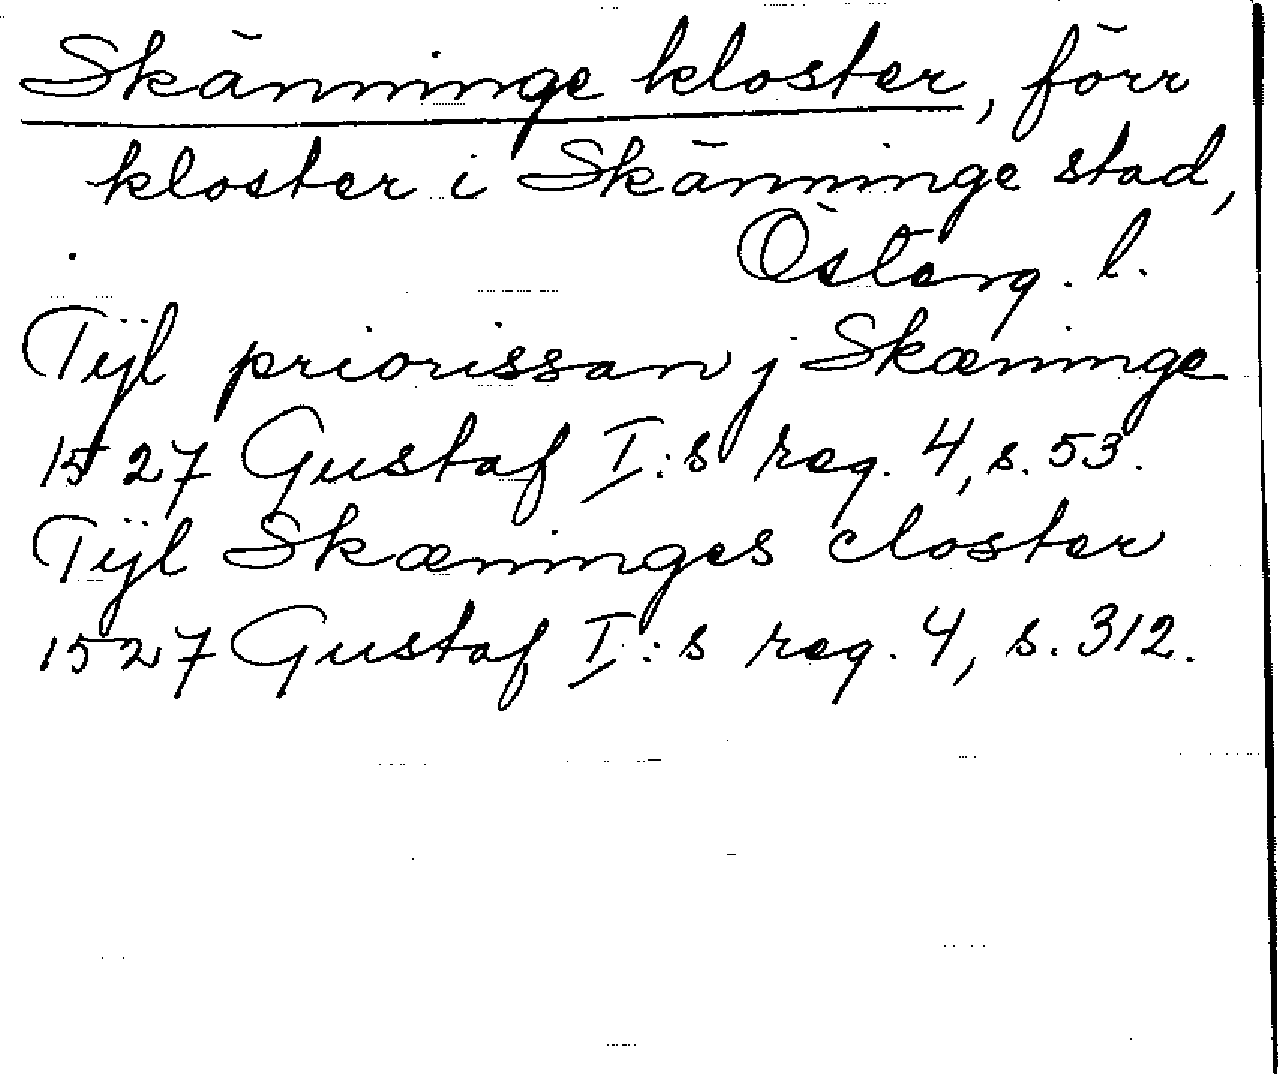 Skänninge kloster, förr
kloster i Skänninge stad,
Österg. l.
Tÿl priorissan j Skæninge
1527 Gustaf I:s reg. 4, s. 53.
Tÿl Skæninges closter
1527 Gustaf I:s reg. 4, s. 312.